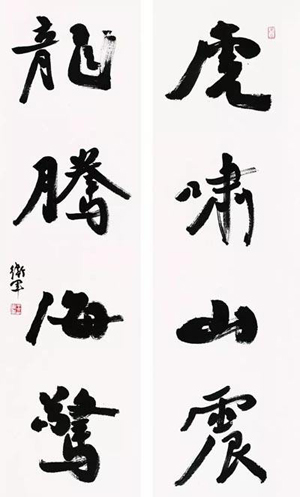 虎嘯山震
龍騰海驚
衛軍